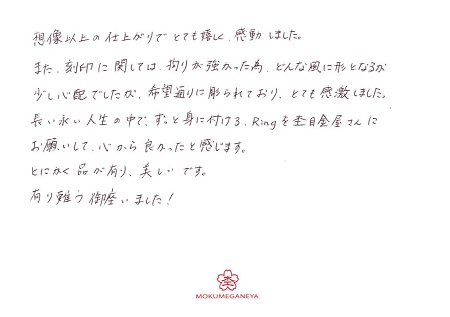 想像以上の仕上がりでとても嬉しく、感動しました。
また、刻印に関しては、拘りが強かった為、どんな風に形となるか
少し心配でしたが、希望通りに彫られており、とても感激しました。
長い永い人生の中で、ずっと身に付ける、Ringを杢目金屋さんに
お願いして、心から良かったと感じます。
とにかく品が有り、美しいです。
有り難う御座いました!
杢
MOKUMEGANEYA